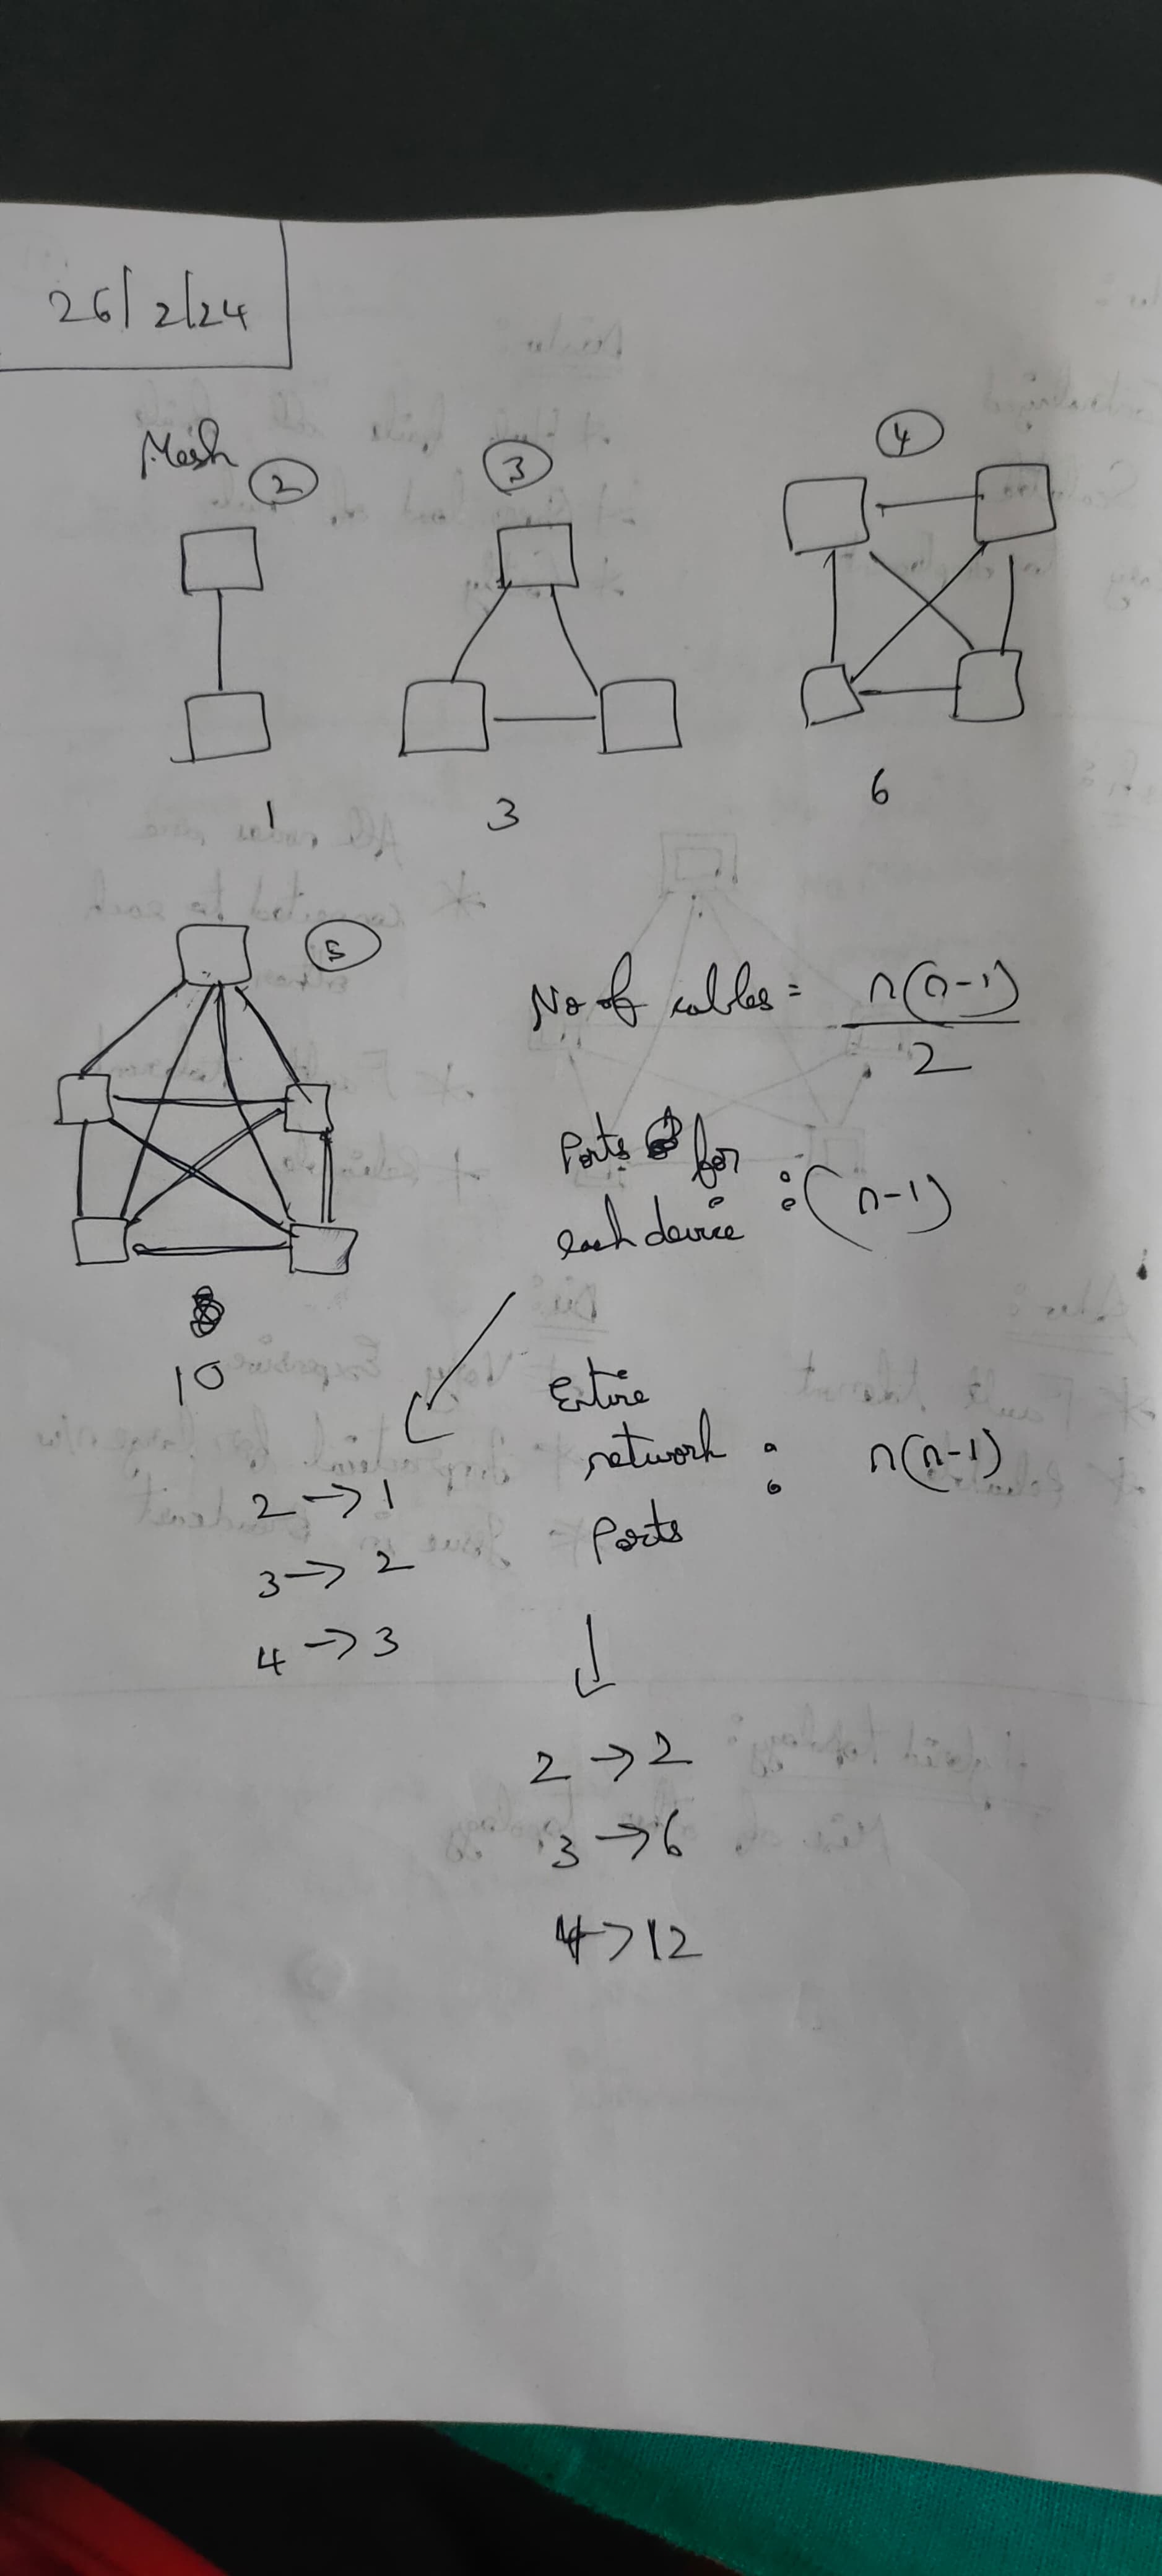 26/2/24
Mesh
2
3
4
1
3
6
5
No of cables = n(n-1)/2
Ports for
each device : (n-1)
10
Entire
network : n(n-1)
Ports
2 → 1
3 → 2
4 → 3
2 → 2
3 → 6
4 → 12